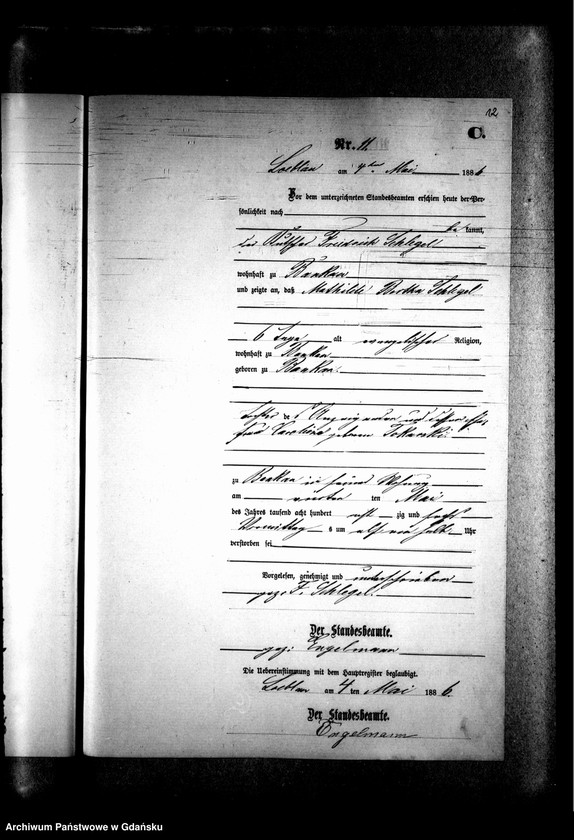 12
C.
Nr. 11.
Loebtau am 4ten Mai 1886
Vor dem unterzeichneten Standesbeamten erschien heute der Per-
sönlichkeit nach
be kannt,
der Friedrich Schlegel
wohnhaft zu Bankau
und zeigte an, daß Mathilde Bertha Schlegel
6 Tage alt evangelischer Religion,
wohnhaft zu Bankau
geboren zu Bankau
Tochter des Anzeigenden und dessen Ehe-
frau Caroline geborene
zu Bankau in seiner Wohnung
am vierten ten Mai
des Jahres tausend acht hundert acht zig und sechs
Vormittag s um elf ein halb Uhr
verstorben sei
Vorgelesen, genehmigt und unterschrieben
gez: F. Schlegel.
Der Standesbeamte.
gez: Engelmann
Die Uebereinstimmung mit dem Hauptregister beglaubigt.
am 4 ten Mai 1886.
Der Standesbeamte.
Engelmann
Archiwum Państwowe w Gdańsku